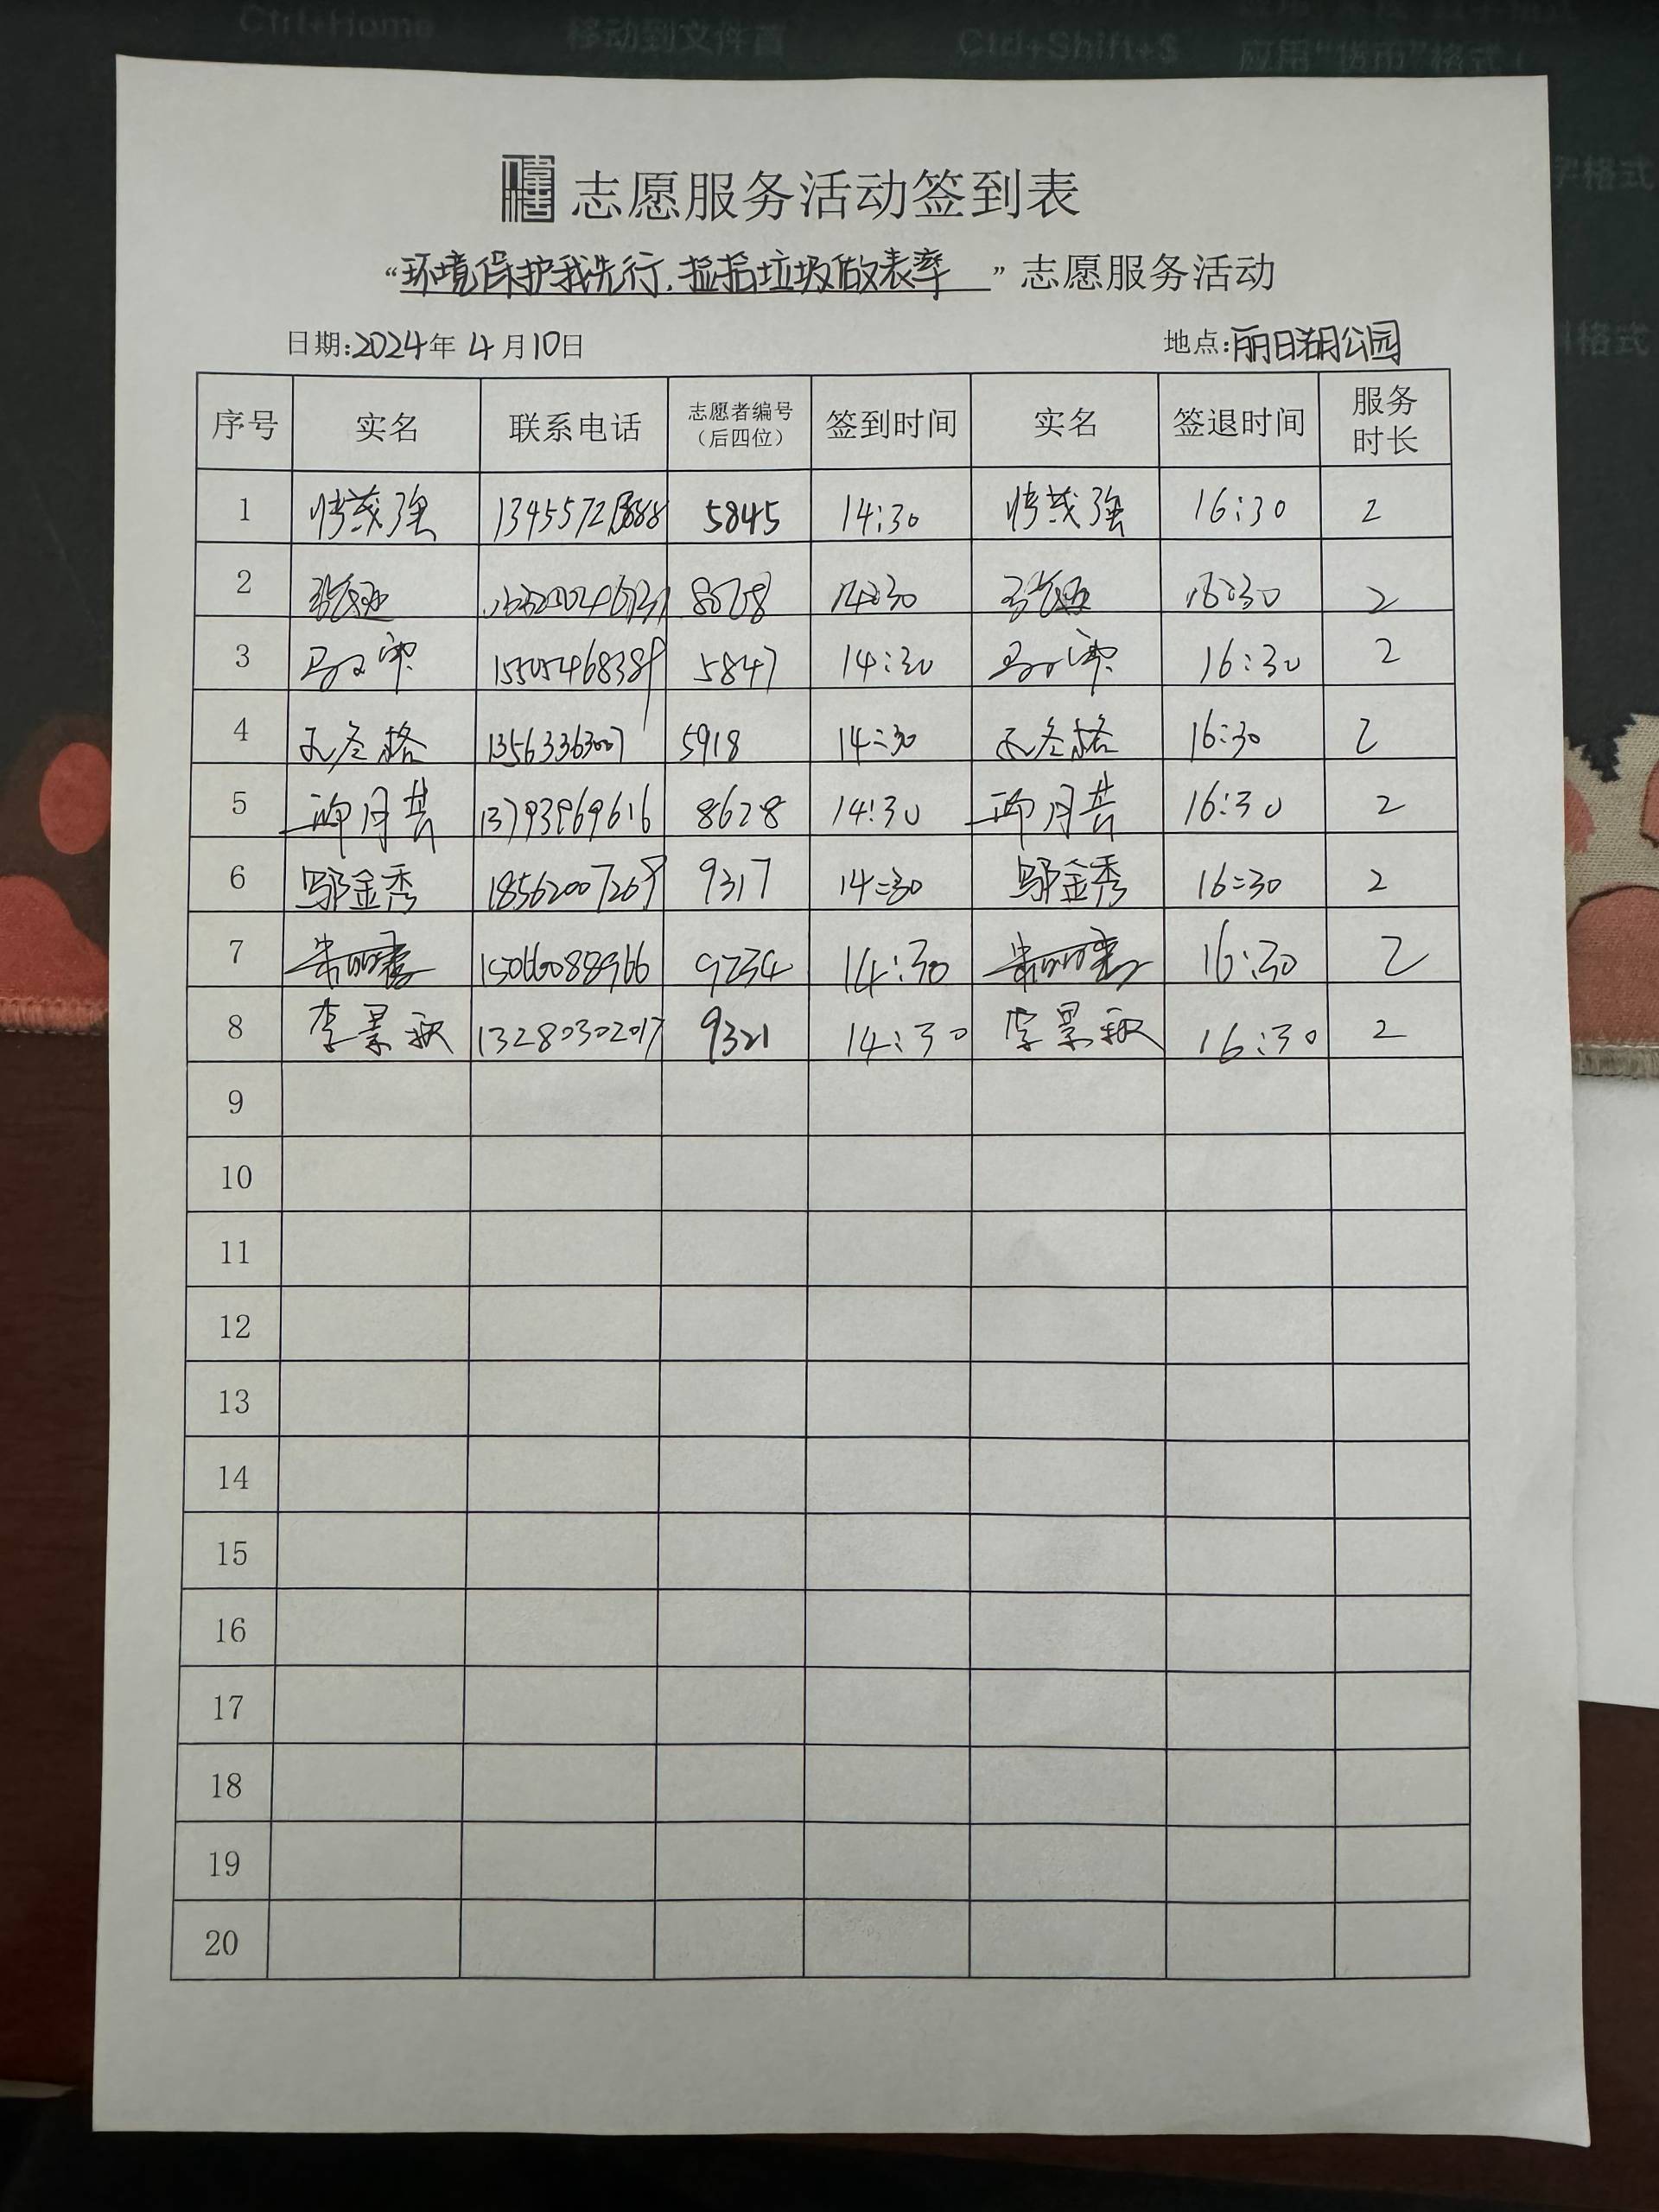 Ctrl+Home 移动到文件首 Ctrl+Shift+$ 应用"货币"格式
志愿服务活动签到表
“环境保护我先行,捡拾垃圾做表率”志愿服务活动
日期:2024年4月10日 地点:丽日湖公园
序号 实名 联系电话 志愿者编号(后四位) 签到时间 实名 签退时间 服务时长
1 5845 14:30 16:30 2
2 14:30 16:30 2
3 15505468389 5847 14:30 16:30 2
4 13563363007 5918 14:30 16:30 2
5 13793969616 8628 14:30 16:30 2
6 邬金秀 18562007269 9317 14:30 邬金秀 16:30 2
7 15066088966 9234 14:30 16:30 2
8 李景秋 13280302017 9321 14:30 李景秋 16:30 2
9
10
11
12
13
14
15
16
17
18
19
20